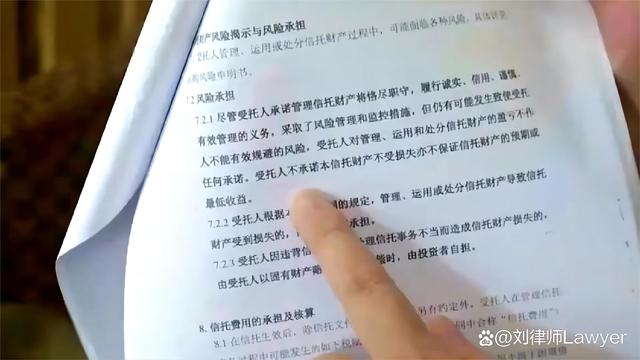 产风险揭示与风险承担
托人管理、运用或处分信托财产过程中，可能面临各种风险，具体详见
购风险申明书。
7.2 风险承担
7.2.1 尽管受托人承诺管理信托财产将恪尽职守，履行诚实、信用、谨慎、
有效管理的义务，采取了风险管理和监控措施，但仍有可能发生致使受托
人不能有效规避的风险，受托人对管理、运用和处分信托财产的盈亏不作
任何承诺。受托人不承诺本信托财产不受损失亦不保证信托财产的预期或
最低收益。
7.2.2 受托人根据本 的规定，管理、运用或处分信托财产导致信托
财产受到损失的， 承担。
7.2.3 受托人因违背信 处理信托事务不当而造成信托财产损失的，
由受托人以固有财产赔 时，由投资者自担。
8. 信托费用的承担及核算
8.1 在信托生效后，除信托文 另有约定外，受托人在管理信托
过程中可能发生的如下税 同中合称“信托费用”）
@刘律师Lawyer